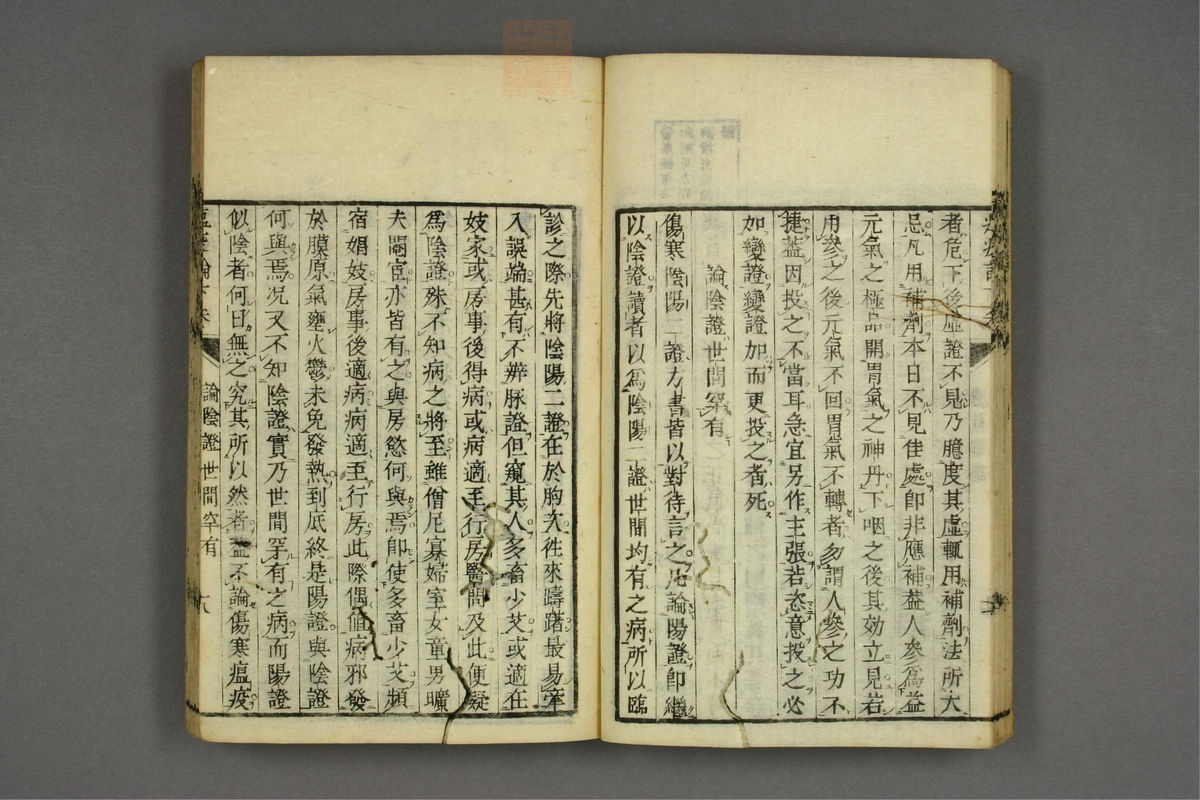 者危下後虛證不見乃臆度其虛輒用補劑法所大
忌凡用補劑本日不見佳處即非應補葢人參爲益
元氣之極品開胃氣之神丹下咽之後其効立見若
用參之後元氣不回胃氣不轉者勿謂人參之功不
捷葢因投之不當耳急宜另作主張若恣意投之必
加變證變證加而更投之者死
論陰證世間罕有
傷寒陰陽二證方書皆以對待言之凡論陽證即繼
以陰證讀者以爲陰陽二證世間均有之病所以臨
診之際先將陰陽二證在於胸次徃來躊躇最易牽
入誤端甚有不辨脉證但窺其人多畜少艾或適在
妓家或房事後得病或病適至行房醫問及此便疑
爲陰證殊不知病之將至雖僧尼寡婦室女童男曠
夫閹宦亦皆有之與房慾何與焉即使多畜少艾頻
宿娼妓房事後適病病適至行房此際偶値病邪發
於膜原氣壅火鬱未免發熱到底終是陽證與陰證
何與焉况又不知陰證實乃世間罕有之病而陽證
似陰者何日無之究其所以然者葢不論傷寒瘟疫
論陰證世間罕有